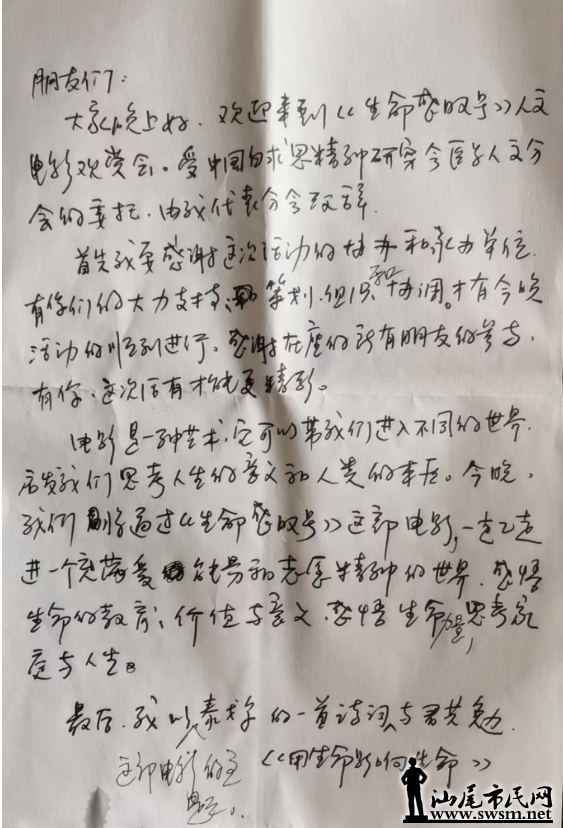 朋友们:
大家晚上好.欢迎来到《生命感叹号》人文
电影观赏会。受中国白求恩精神研究会医学人文分
会的委托.由我代表分会致辞.
首先我要感谢这次活动的协办和承办单位.
有你们的大力支持、策划.组织和协调.才有今晚
活动的顺利进行.感谢在座的所有朋友的参与,
有你,这次活动才能更精彩。
电影是一种艺术,它可以带我们进入不同的世界.
启发我们思考人生的意义和人类的本质。今晚,
我们将通过《生命感叹号》这部电影,一起走
进一个充满爱 和志愿精神的世界.感悟
生命的教育、价值与意义.感悟生命力量,思考家
庭与人生。
最后.我以泰戈尔的一首诗词与君共勉.
这部电影的主 《用生命影响生命》
题。
汕尾市民网
www.swsm.net